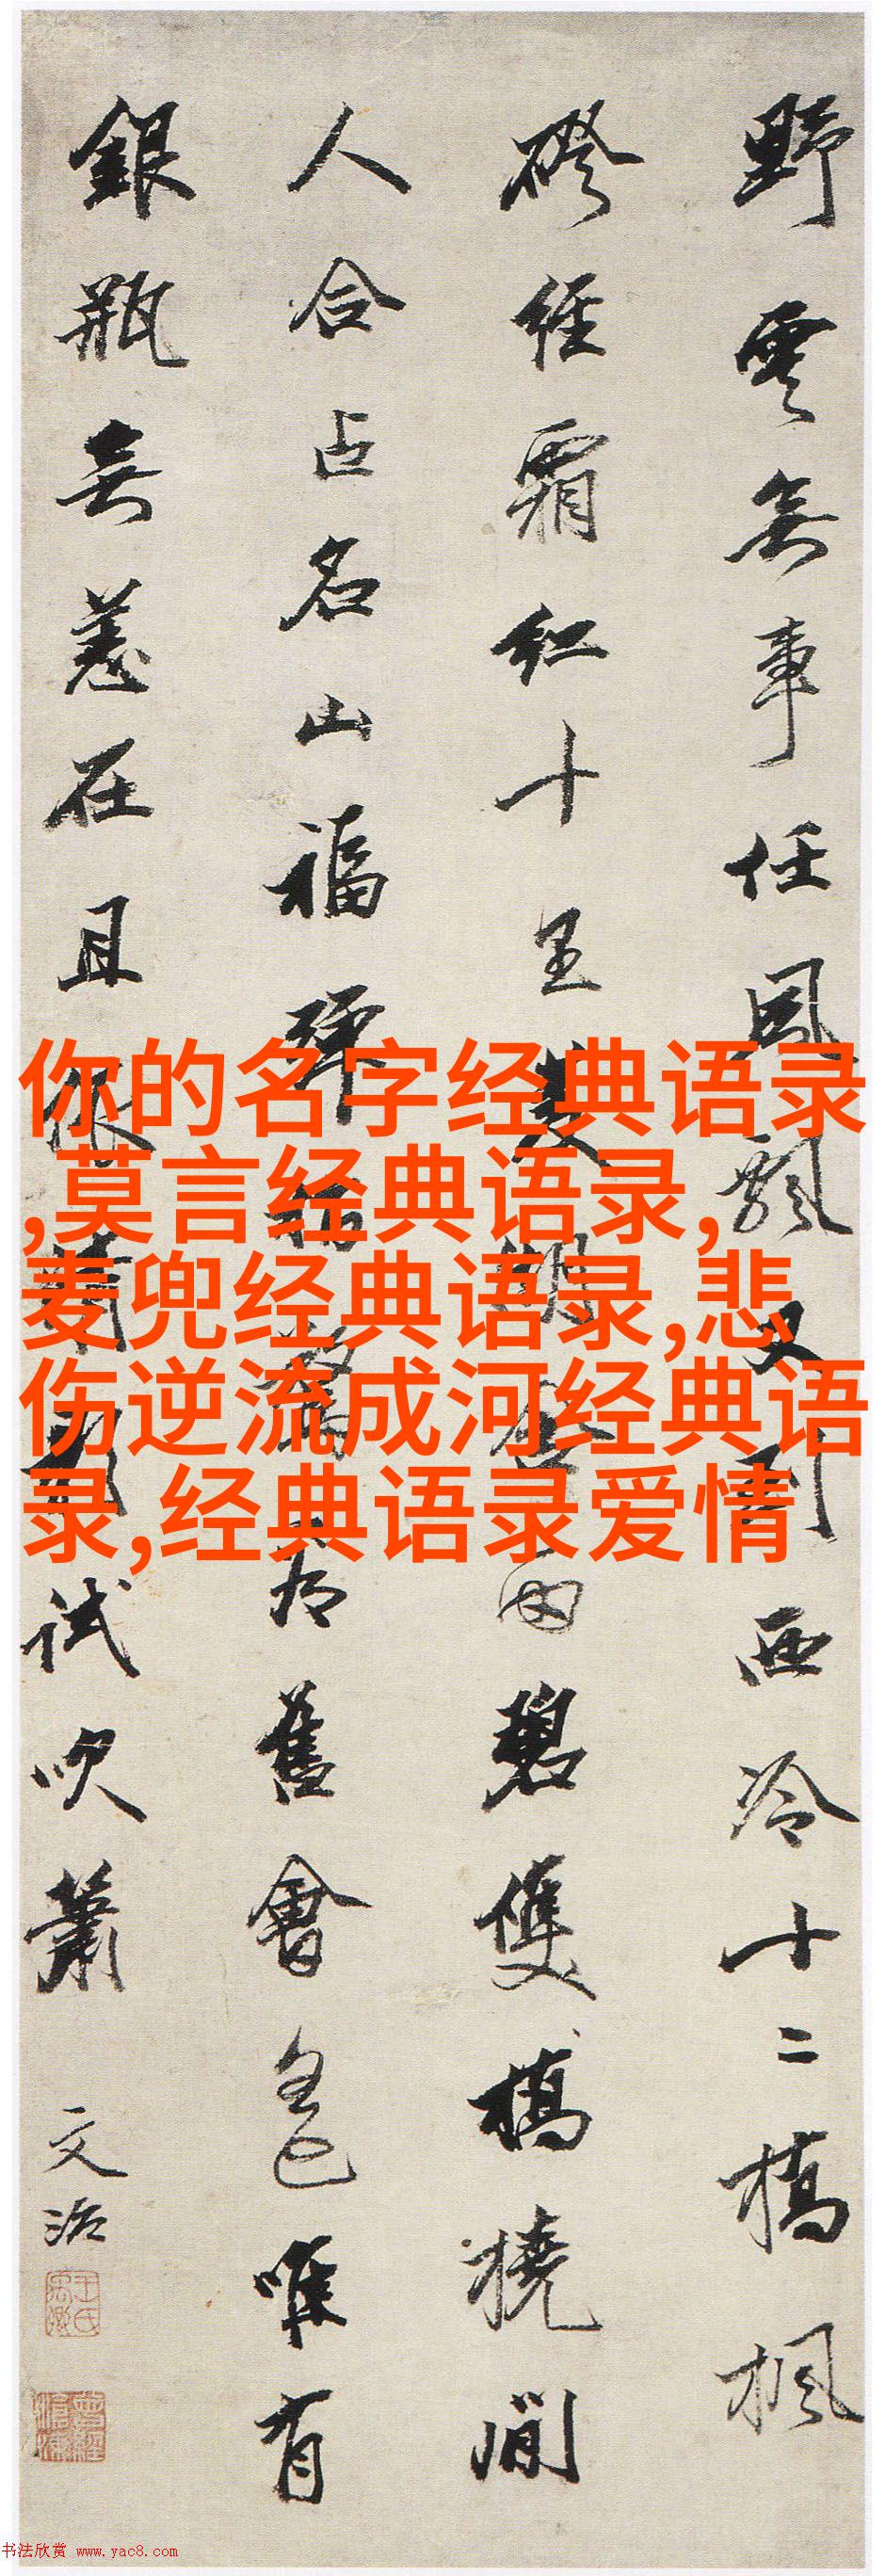 野雲無事任風飄又到西冷十二橋楓
磴經霜紅十里湖雨碧雙橋橈閒
人合占名山福彈指舊會唯有
銀瓶無恙在且試吹簫
文治
你的名字经典语录
,莫言经典语录,
麦兜经典语录,悲
伤逆流成河经典语
录,经典语录爱情
书法欣赏 www.yac8.com